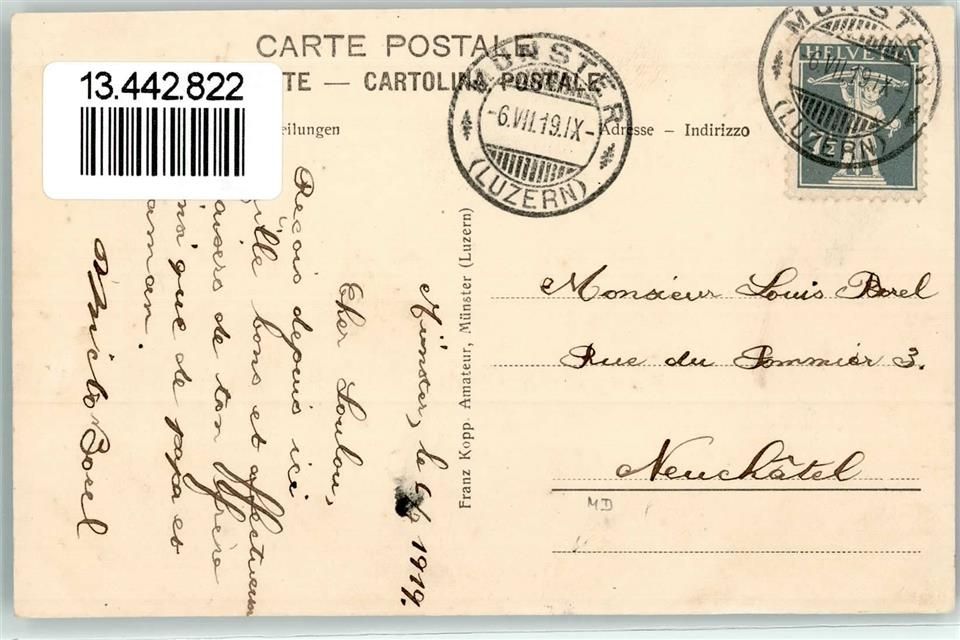 CARTE POSTALE
TE — CARTOLINA POSTALE
13.442.822
eilungen
Adresse – Indirizzo
MÜNSTER
-6.VII.19.IX-
(LUZERN)
MÜNSTER
-6.VII.19.IX-
(LUZERN)
HELVETIA
7½
Monsieur Louis Borel
Rue du Pommier 3.
Neuchâtel
MD
Franz Kopp. Amateur, Münster (Luzern)
Münster, le 1919.
Cher Loulou,
Reçois depuis ici
mille bons et affectueux
baisers de ton frère
ainsi que de papa et
maman.
Borel